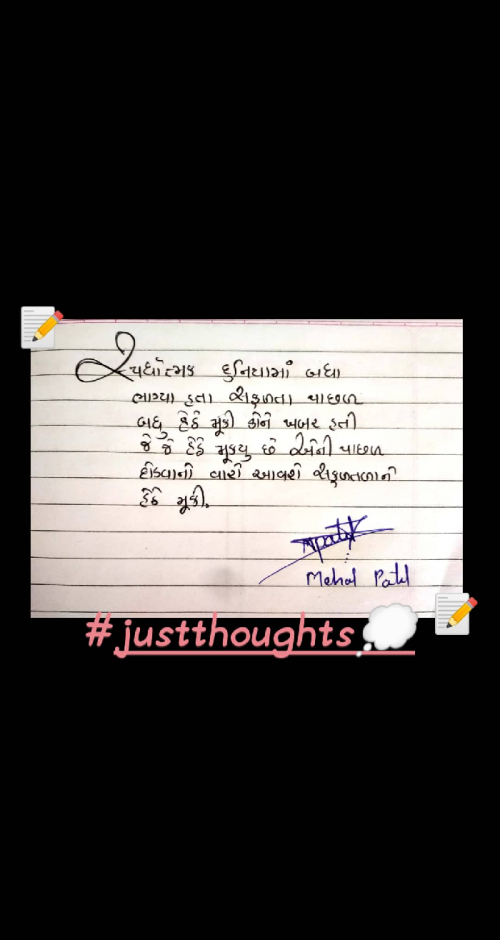 સ્પર્ધાત્મક દુનિયામાં બધા
ભાગ્યા હતા સફળતા પાછળ
બધુ હેઠે મૂકી કોને ખબર હતી
કે જે હેઠે મૂક્યુ છે એની પાછળ
દોડવાનો વારો આવશે સફળતાને
હેઠે મૂકી.
Mpatil
Mehal Patil
#justthoughts